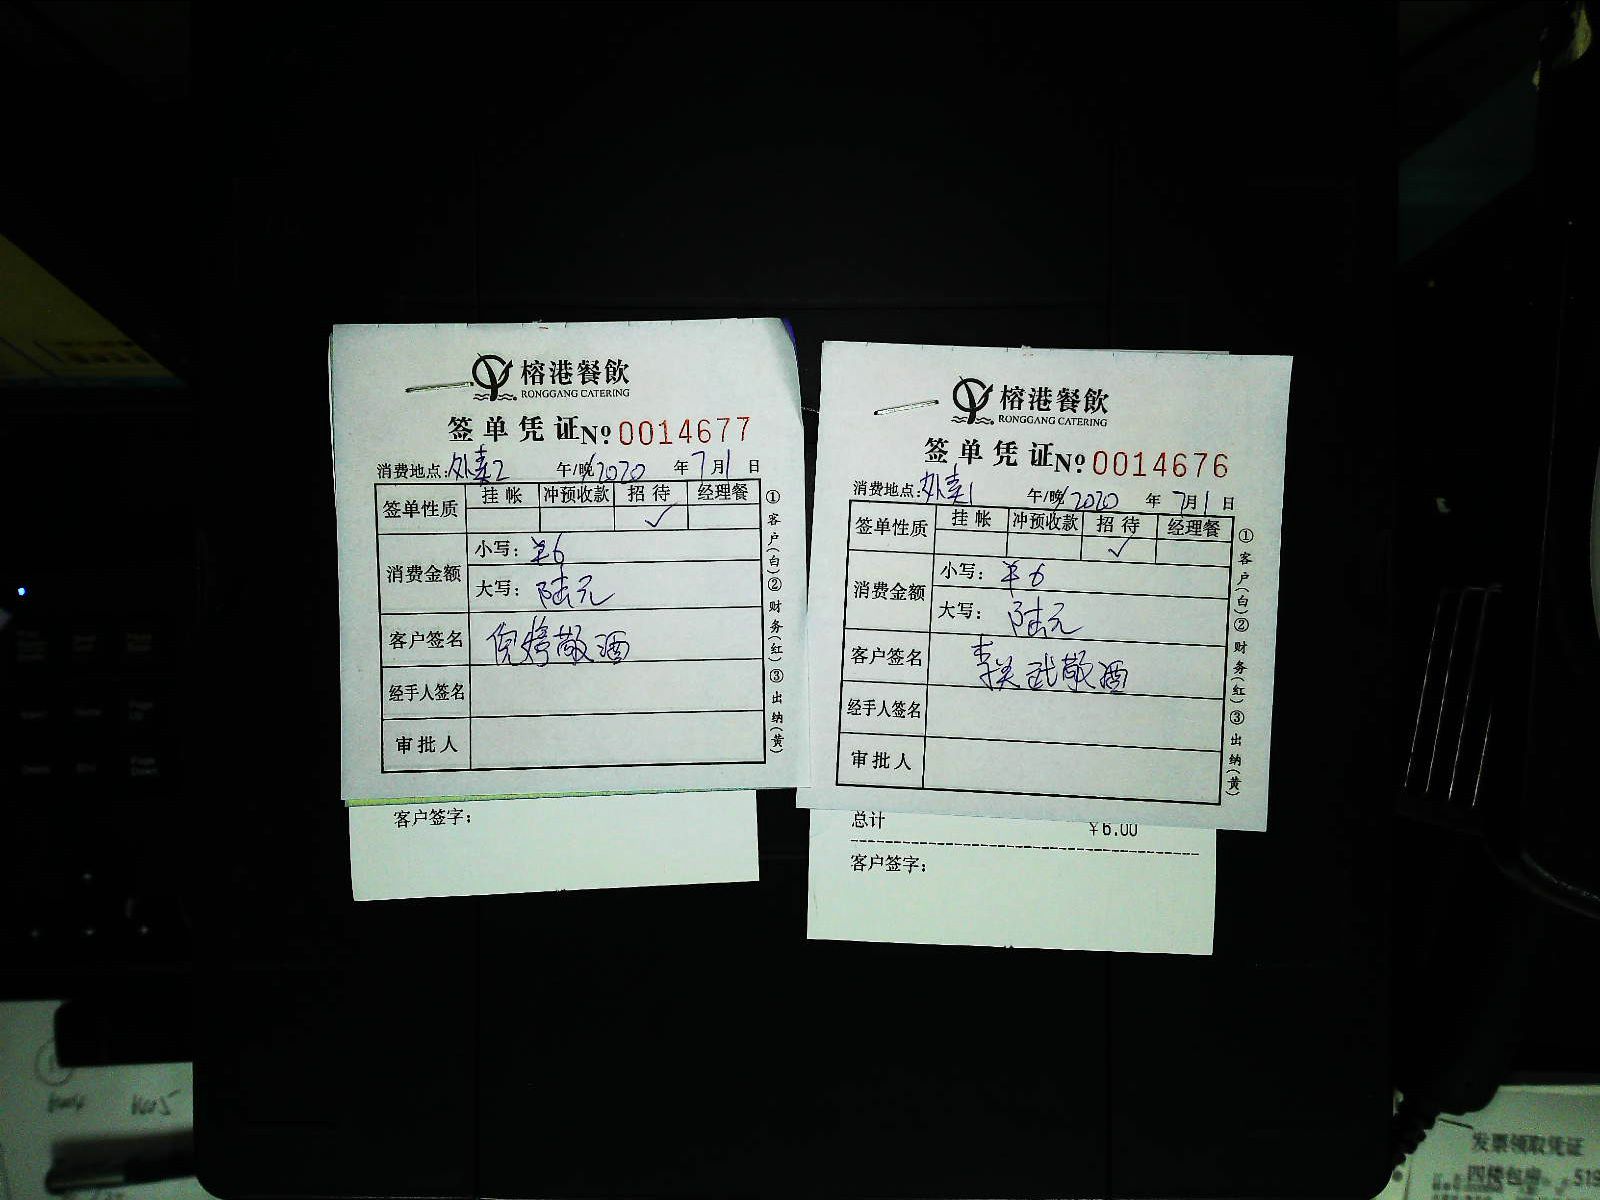 榕港餐飲
RONGGANG CATERING
签单凭证 № 0014677
消费地点: 外卖2 午/晚 2020 年 7月1日
签单性质 挂帐 冲预收款 招待 经理餐
✓
消费金额 小写: ¥6
大写: 陆元
客户签名 倪婷敬酒
经手人签名
审批人
①客户(白)②财务(红)③出纳(黄)
客户签字:
榕港餐飲
RONGGANG CATERING
签单凭证 № 0014676
消费地点: 外卖1 午/晚 2020 年 7月1日
签单性质 挂帐 冲预收款 招待 经理餐
✓
消费金额 小写: ¥6
大写: 陆元
客户签名 敬酒
经手人签名
审批人
①客户(白)②财务(红)③出纳(黄)
总计 ¥6.00
客户签字:
发票领取凭证
四楼包房